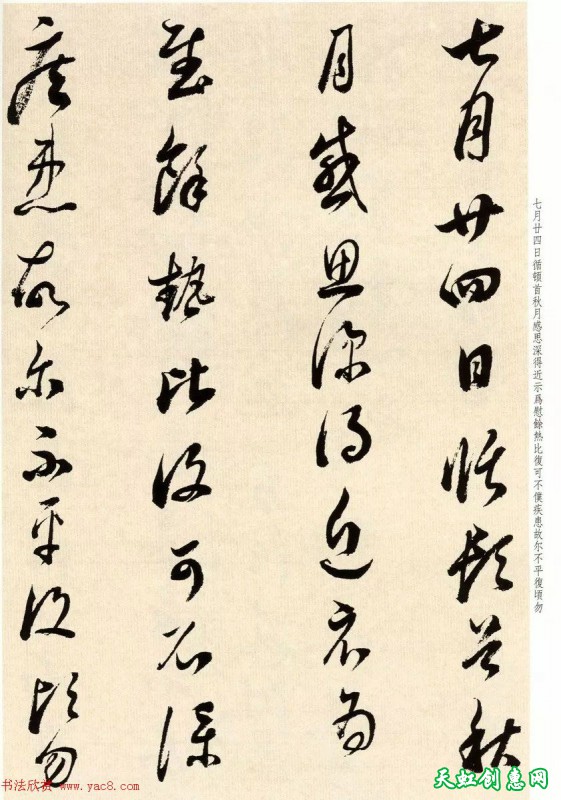 七月廿四日循頓首秋
月感思深得近示為
慰餘熱比復可不僕
疾患故尔不平復頃勿
七月廿四日循頓首秋月感思深得近示爲慰餘熱比復可不僕疾患故尔不平復頃勿
书法欣赏 www.yac8.com
天虹创惠网